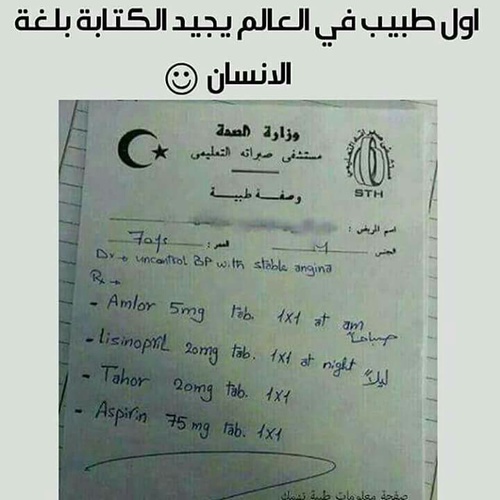 اول طبيب في العالم يجيد الكتابة بلغة
الانسان ☺
وزارة الصحة
مستشفى صبراته التعليمي
STH
وصفة طبية
اسم المريض :
الجنس : M العمر : 70ys
Dx → uncontrol BP with stable angina
Rx →
- Amlor 5mg tab. 1x1 at am صباحاً
- Lisinopril 20mg tab. 1x1 at night ليلاً
- Tahor 20mg tab. 1x1
- Aspirin 75mg tab. 1x1
صفحة معلومات طبية تهمك